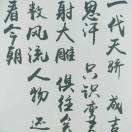 一代天骄成吉
思汗只识弯
射大雕俱往矣
数风流人物还
看今朝